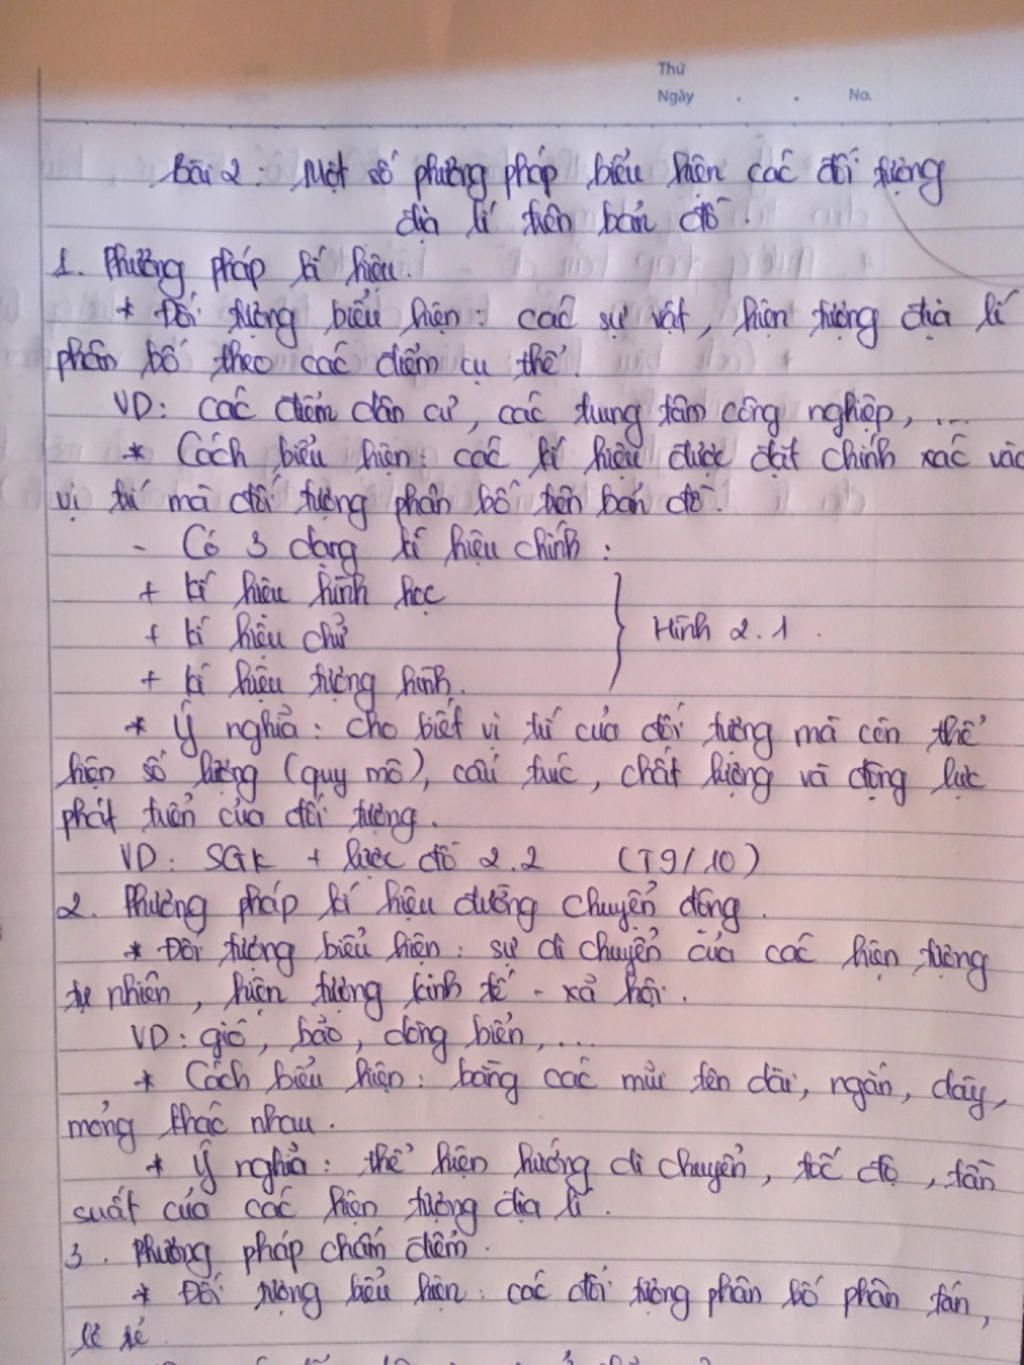 Thứ
Ngày . . No.
Bài 2: Một số phương pháp biểu hiện các đối tượng
địa lí trên bản đồ.
1. Phương pháp kí hiệu.
* Đối tượng biểu hiện: các sự vật, hiện tượng địa lí
phân bố theo các điểm cụ thể.
VD: các điểm dân cư, các trung tâm công nghiệp,...
* Cách biểu hiện: các kí hiệu được đặt chính xác vào
vị trí mà đối tượng phân bố trên bản đồ.
- Có 3 dạng kí hiệu chính:
+ kí hiệu hình học
+ kí hiệu chữ
+ kí hiệu tượng hình.
Hình 2.1.
* Ý nghĩa: cho biết vị trí của đối tượng mà còn thể
hiện số lượng (quy mô), cấu trúc, chất lượng và động lực
phát triển của đối tượng.
VD: SGK + lược đồ 2.2 (T9/10)
2. Phương pháp kí hiệu đường chuyển động.
* Đối tượng biểu hiện: sự di chuyển của các hiện tượng
tự nhiên, hiện tượng kinh tế - xã hội.
VD: gió, bão, dòng biển,...
* Cách biểu hiện: bằng các mũi tên dài, ngắn, dày,
mỏng khác nhau.
* Ý nghĩa: thể hiện hướng di chuyển, tốc độ, tần
suất của các hiện tượng địa lí.
3. Phương pháp chấm điểm.
* Đối tượng biểu hiện: các đối tượng phân bố phân tán,
lẻ tẻ.